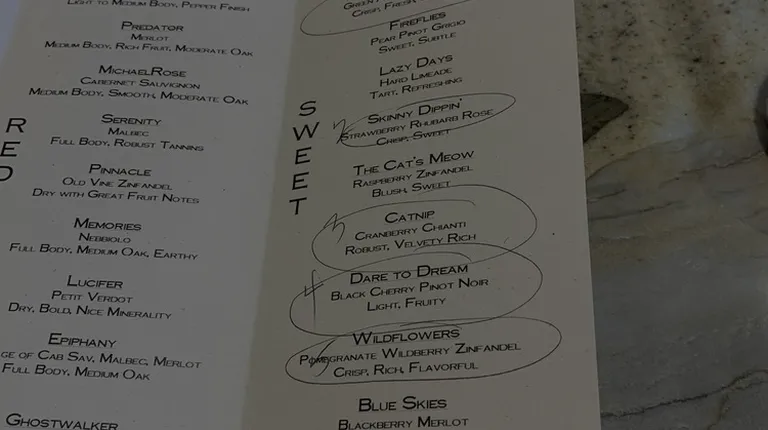 Light to Medium Body, Pepper Finish
Predator
Merlot
Medium Body, Rich Fruit, Moderate Oak
MichaelRose
Cabernet Sauvignon
Medium Body, Smooth, Moderate Oak
Serenity
Malbec
Full Body, Robust Tannins
Pinnacle
Old Vine Zinfandel
Dry with Great Fruit Notes
Memories
Nebbiolo
Full Body, Medium Oak, Earthy
Lucifer
Petit Verdot
Dry, Bold, Nice Minerality
Epiphany
of Cab Sav, Malbec, Merlot
Full Body, Medium Oak
Ghostwalker
RED
SWEET
Green
Crisp, Fresh
Fireflies
Pear Pinot Grigio
Sweet, Subtle
Lazy Days
Hard Limeade
Tart, Refreshing
Skinny Dippin'
Strawberry Rhubarb Rose
Crisp, Sweet
The Cat's Meow
Raspberry Zinfandel
Blush, Sweet
3
Catnip
Cranberry Chianti
Robust, Velvety Rich
4
Dare to Dream
Black Cherry Pinot Noir
Light, Fruity
Wildflowers
Pomegranate Wildberry Zinfandel
Crisp, Rich, Flavorful
Blue Skies
Blackberry Merlot